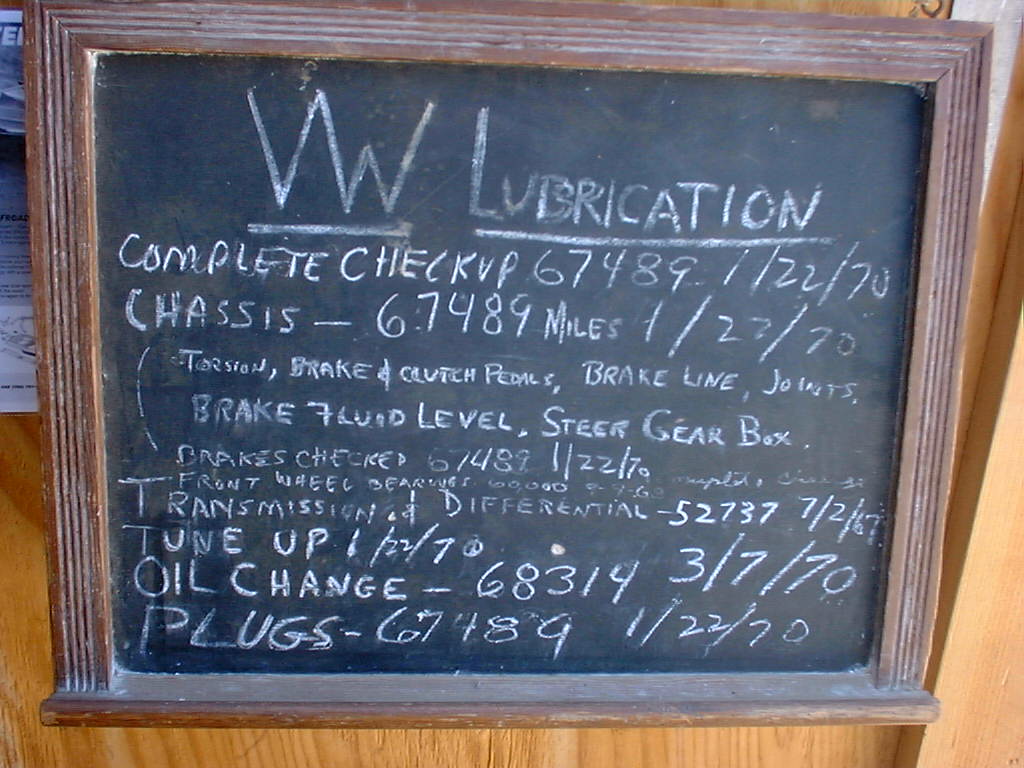 VW LUBRICATION
COMPLETE CHECKUP 67489 1/22/70
CHASSIS - 67489 MILES 1/22/70
(TORSION, BRAKE & CLUTCH PEDALS, BRAKE LINE, JOINTS,
BRAKE FLUID LEVEL, STEER GEAR BOX.
BRAKES CHECKED 67489 1/22/70
FRONT WHEEL BEARINGS 60,000
TRANSMISSION & DIFFERENTIAL - 52737 7/2/67
TUNE UP 1/22/70
OIL CHANGE - 68314 3/7/70
PLUGS - 67489 1/22/70
FROAD